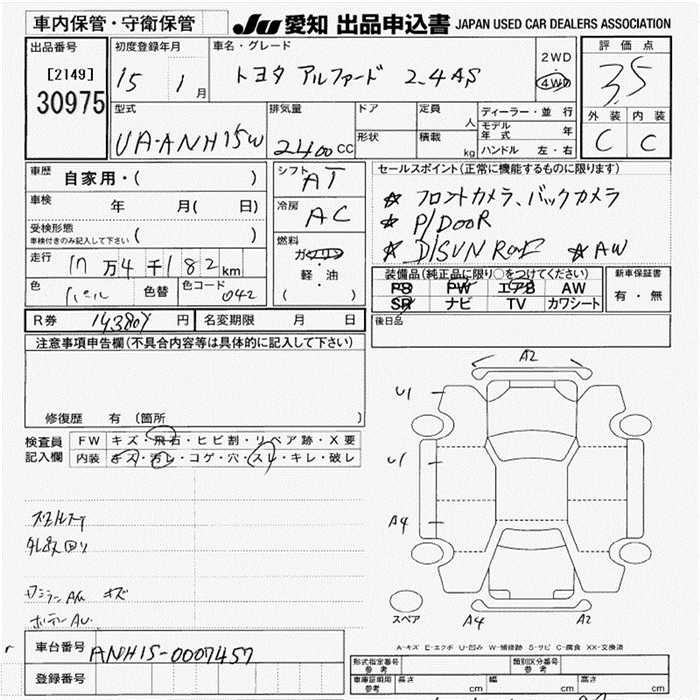 車内保管・守衛保管
JU 愛知 出品申込書 JAPAN USED CAR DEALERS ASSOCIATION
出品番号
[2149]
30975
初度登録年月
15 1月
車名・グレード
トヨタ アルファード 2.4AS
2WD
4WD
評価点
3.5
外装 内装
C C
型式
UA-ANH15W
排気量
2400CC
ドア
形状
定員
人
積載
kg
ディーラー・並行
モデル年式 年
ハンドル 左・右
車歴 自家用・( )
車検 年 月( 日)
受検形態
車検付きのみ記入して下さい ( )
走行 万4千182km
色 パール 色替 色コード 042
シフト
AT
冷房
AC
燃料
ガソリン
・
軽・油
( )
セールスポイント(正常に機能するものに限ります)
☆ フロントカメラ、バックカメラ
☆ P/DOOR
装備品(純正品に限り○をつけてください)
PS PW エアB AW
SR ナビ TV カワシート
新車保証書
有・無
後日品
R券 円 名変期限 月 日
注意事項申告欄(不具合内容等は具体的に記入して下さい)
修復歴 有 (箇所 )
検査員
記入欄
FW キズ・飛石・ヒビ割・リペア跡・X要
内装 キズ・汚レ・コゲ・穴・スレ・キレ・破レ
A2
U1
U1
A4
スペア
A4 A2
A-キズ E-エクボ U-凹み W-補修跡 S-サビ C-腐食 XX-交換済
車台番号 ANH15-0007457
登録番号
形式指定番号
参考
類別区分番号
参考
車庫証明用
参考
長さ cm 幅 cm 高さ cm